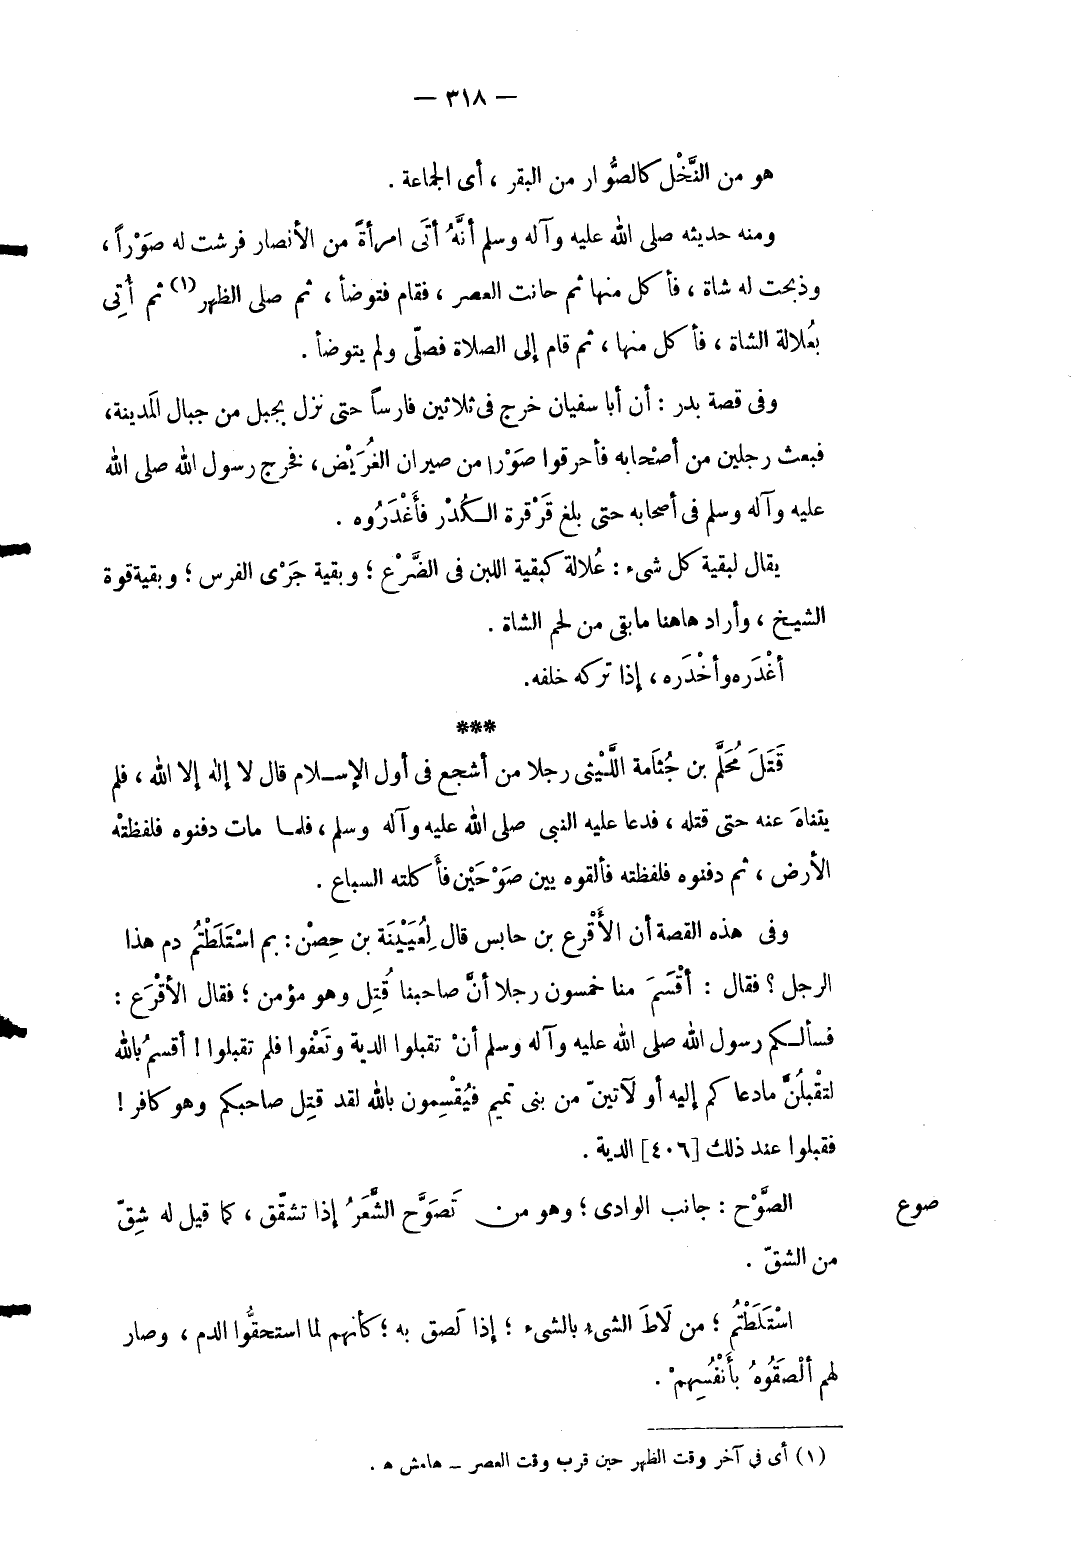 — ٣١٨ —
هو من النَّخْل كالصُّوار من البقر ، أى الجماعة .
ومنه حديثه صلى الله عليه وآله وسلم أنَّهُ أتَى امرأةً من الأنصار فرشت له صَوْراً ،
وذبحت له شاة ، فأكل منها ثم حانت العصر ، فقام فتوضأ ، ثم صلى الظهر(١) ثم أُتِى
بعُلالة الشاة ، فأكل منها ، ثم قام إلى الصلاة فصلّى ولم يتوضأ .
وفى قصة بدر : أن أبا سفيان خرج فى ثلاثين فارساً حتى نزل بجبل من جبال المَدينة ،
فبعث رجلين من أصْحابه فأحرقوا صَوْرا من صيران العُرَيْض ، فخرج رسول الله صلى الله
عليه وآله وسلم فى أصحابه حتى بلغ قَرْقرة الكُدْر فأَغْدَرُوه .
يقال لبقية كل شىء : عُلالة كبقية اللبن فى الضَّرْع ؛ وبقية جَرْى الفرس ؛ وبقية قوة
الشيخ ، وأراد هاهنا ما بقى من لحم الشاة .
أغْدَره وأخْدَره ، إذا تركه خلفه.
***
قَتَلَ مُحَلَّم بن جُثَامة اللَّيْثى رجلا من أشجع فى أول الإسلام قال لا إله إلا الله ، فلم
يتناهَ عنه حتى قتله ، فدعا عليه النبى صلى الله عليه وآله وسلم ، فلما مات دفنوه فلفظتْه
الأرض ، ثم دفنوه فلفظته فألقوه بين صَوْحَيْن فأَكلته السباع .
وفى هذه القصة أن الأَقْرع بن حابس قال لِعُيَيْنَة بن حِصْن : بم اسْتَلَطْتُم دم هذا
الرجل ؟ فقال : أقْسَمَ منا خمسون رجلا أنَّ صاحبنا قُتِل وهو مؤمن ؛ فقال الأقْرَع :
فسألكم رسول الله صلى الله عليه وآله وسلم أنْ تقبلوا الدية وتَعْفوا فلم تقبلوا ! أقسمُ بالله
لتقْبلُنَّ مادعاكم إليه أو لآتينّ من بنى تميم فيُقْسِمون بالله لقد قتِل صاحبكم وهو كافر !
فقبلوا عند ذلك [٤٠٦] الدية .
صوع
الصَّوْح : جانب الوادى ؛ وهو من تَصَوَّح الشَّعَرُ إذا تشقّق ، كما قيل له شِقّ
من الشقّ .
اسْتَلَطْتُم ؛ من لَاطَ الشىء بالشىء ؛ إذا لَصق به ؛ كأنهم لما استحقُّوا الدم ، وصار
لهم ألْصَقُوهُ بأَنْفُسِهمْ .
(١) أى في آخر وقت الظهر حين قرب وقت العصر – هامش ه .